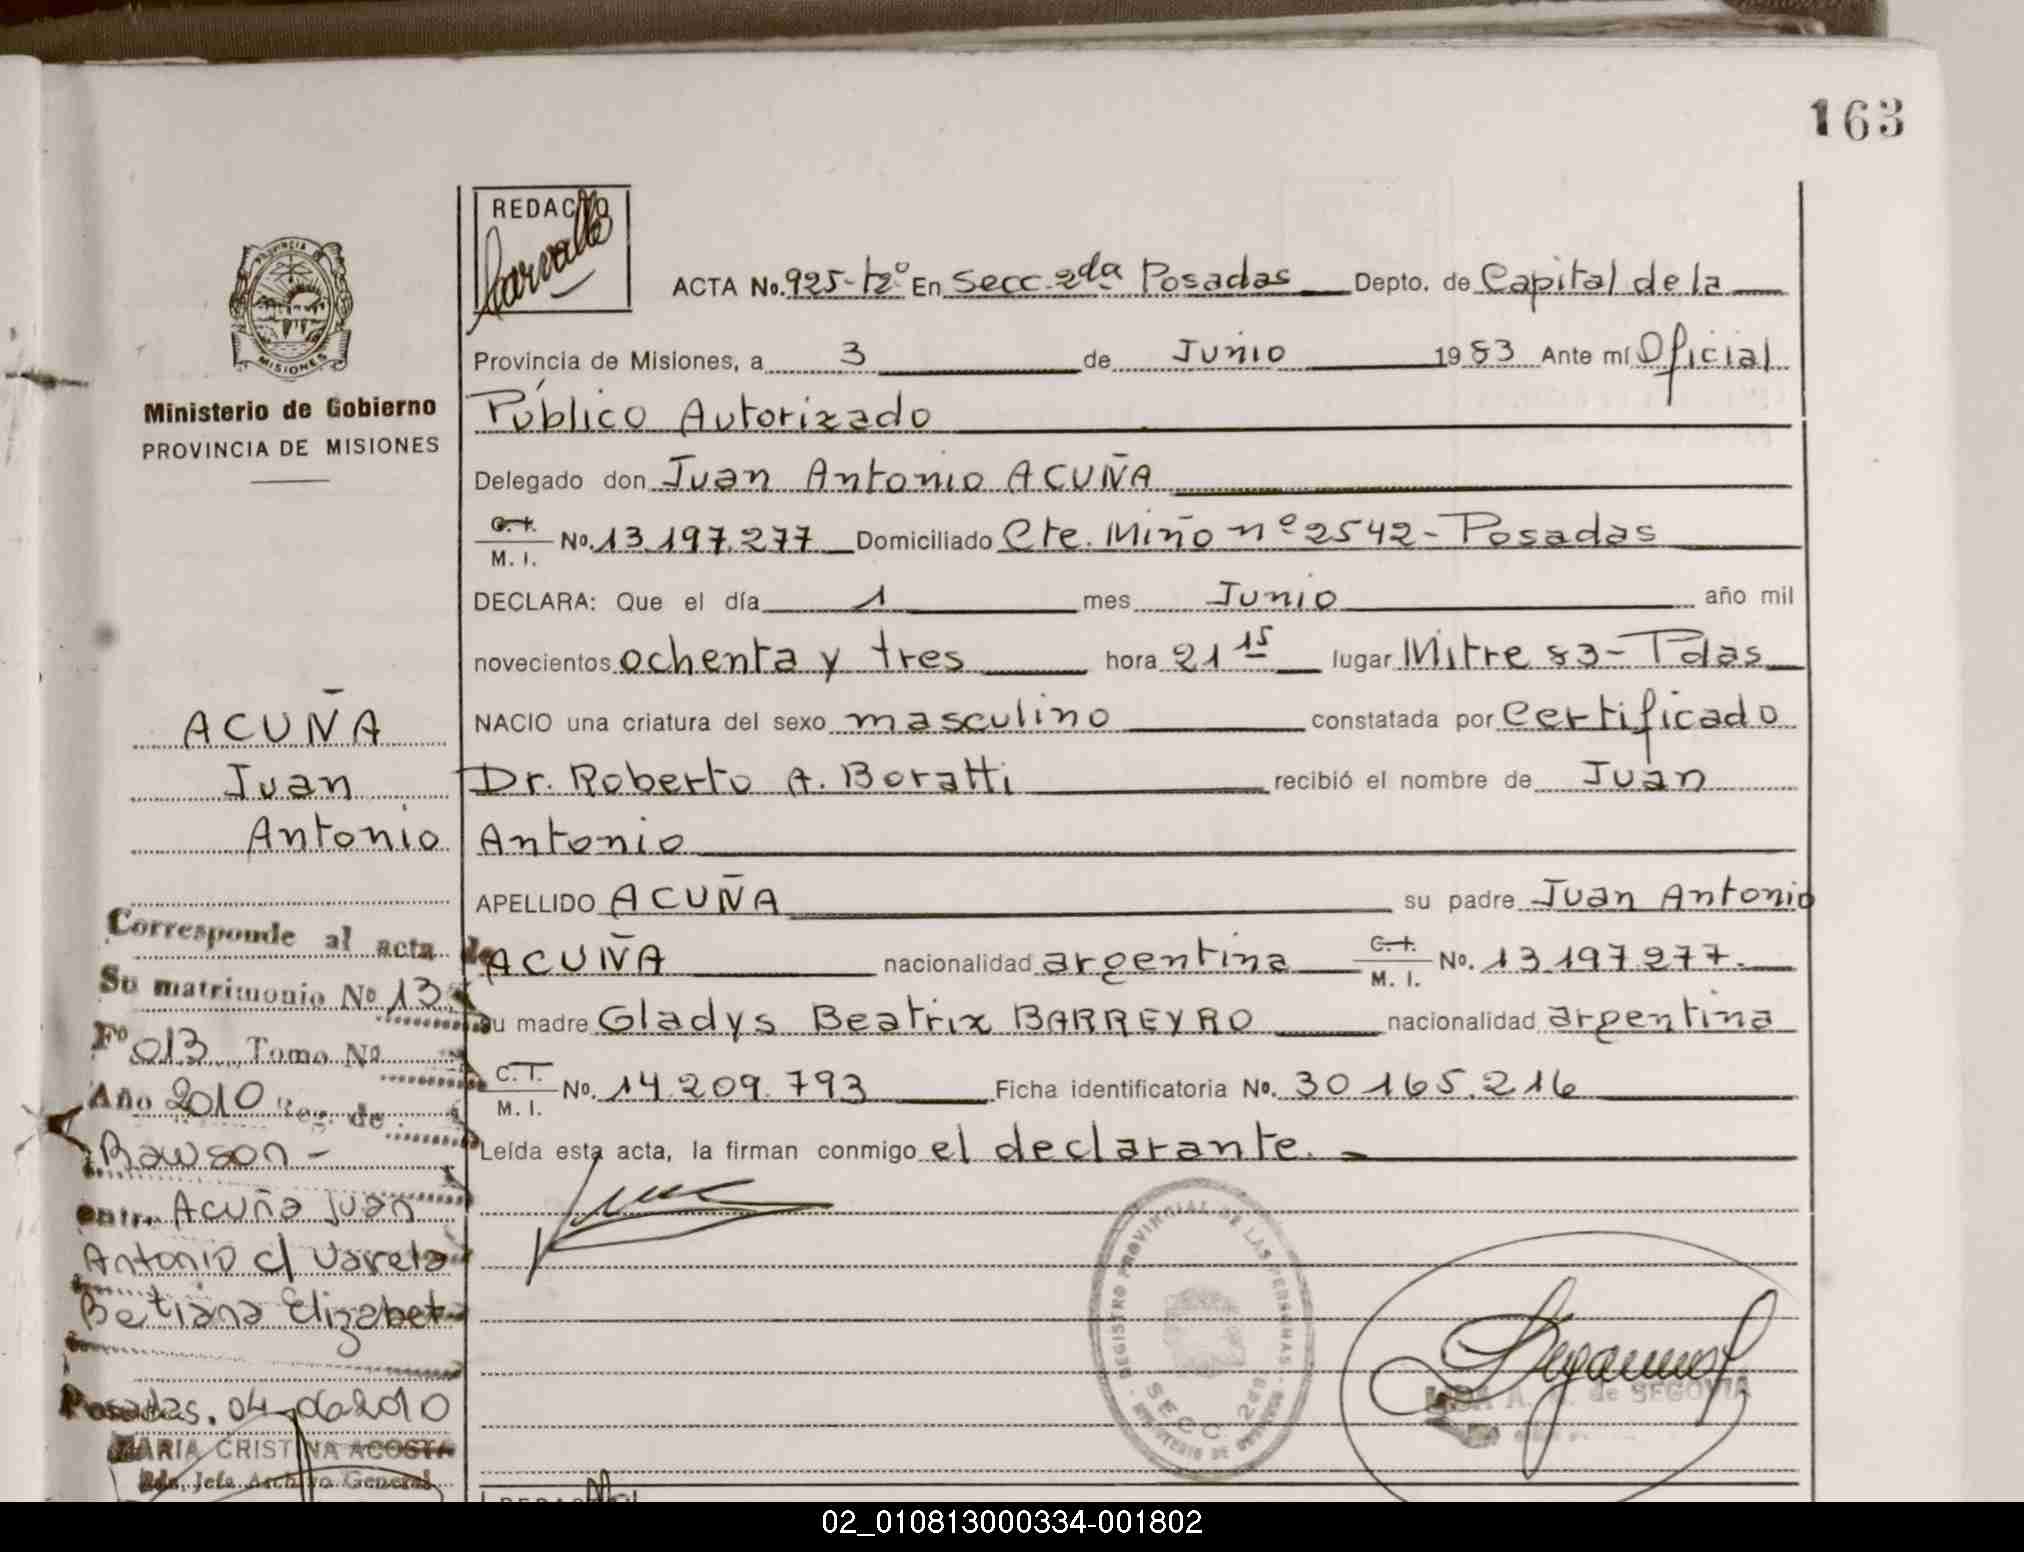 163
REDACTO
Carvallo
ACTA No. 925-tº2º En Secc. 2da Posadas Depto. de Capital de la
Provincia de Misiones, a 3 de Junio 1983 Ante mí Oficial
Público Autorizado
Delegado don Juan Antonio ACUÑA
C. I. M. I. No. 13.197.277 Domiciliado Cte. Miño nº 2542 - Posadas
DECLARA: Que el día 1 mes Junio año mil
novecientos ochenta y tres hora 21 15 lugar Mitre 83 - Pdas
NACIO una criatura del sexo masculino constatada por Certificado
Dr. Roberto A. Boratti recibió el nombre de Juan
Antonio
APELLIDO ACUÑA su padre Juan Antonio
ACUÑA nacionalidad argentina C. I. M. I. No. 13.197.277.
su madre Gladys Beatrix BARREYRO nacionalidad argentina
C. I. M. I. No. 14.209.793 Ficha identificatoria No. 30.165.216
Leída esta acta, la firman conmigo el declarante.
PROVINCIA
MISIONES
Ministerio de Gobierno
PROVINCIA DE MISIONES
ACUÑA
Juan
Antonio
Corresponde al acta de
Su matrimonio Nº 13
Fº 013 Tomo Nº
Año 2010 Reg. de
Rawson -
entre Acuña Juan
Antonio c/ Varela
Betiana Elizabet
Posadas, 04-06-2010
MARIA CRISTINA ACOSTA
Jefe Archivo General
REGISTRO PROVINCIAL DE LAS PERSONAS
SECC. 2da
MINISTERIO DE GOBIERNO
de SEGOVIA
02_010813000334-001802